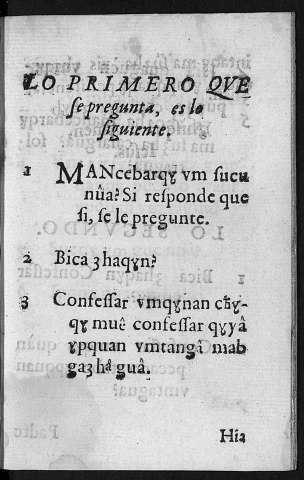 LO PRIMERO QVE
ſe pregunta, es lo
ſiguiente.
1 MANcebarqɣ vm ſucu
nûa? Si reſponde que
ſi, ſe le pregunte.
2 Bica ȝhaqɣn?
3 Confeſſar vmqɣnan
qɣ muê confeſſar qɣyâ
ɣpquan vmtangâ mab
gaȝ guâ.
Hia